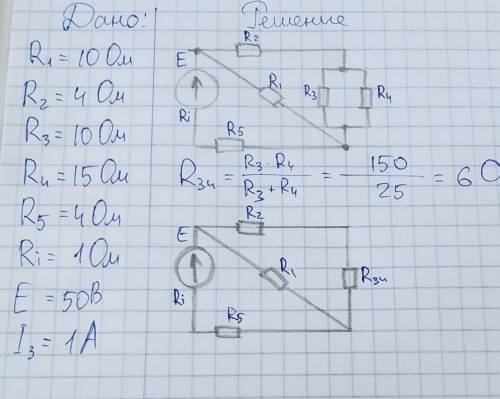 Дано:
R1 = 10 Ом
R2 = 4 Ом
R3 = 10 Ом
R4 = 15 Ом
R5 = 4 Ом
Ri = 1 Ом
E = 50В
I3 = 1А
Решение
R2
E
R1
R3
R4
Ri
R5
R34 = R3 · R4 / R3 + R4 = 150 / 25 = 6 О
R2
E
R1
R34
Ri
R5